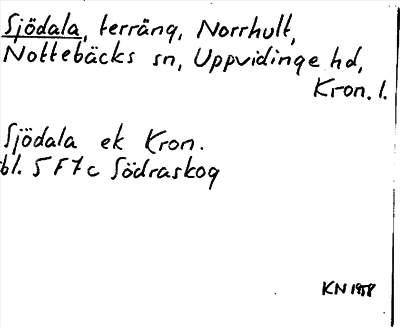 Sjödala, terräng, Norrhult,
Nottebäcks sn, Uppvidinge hd,
Kron. l.
Sjödala ek Kron.
bl. 5 F 7 c Södraskog
KN 1958